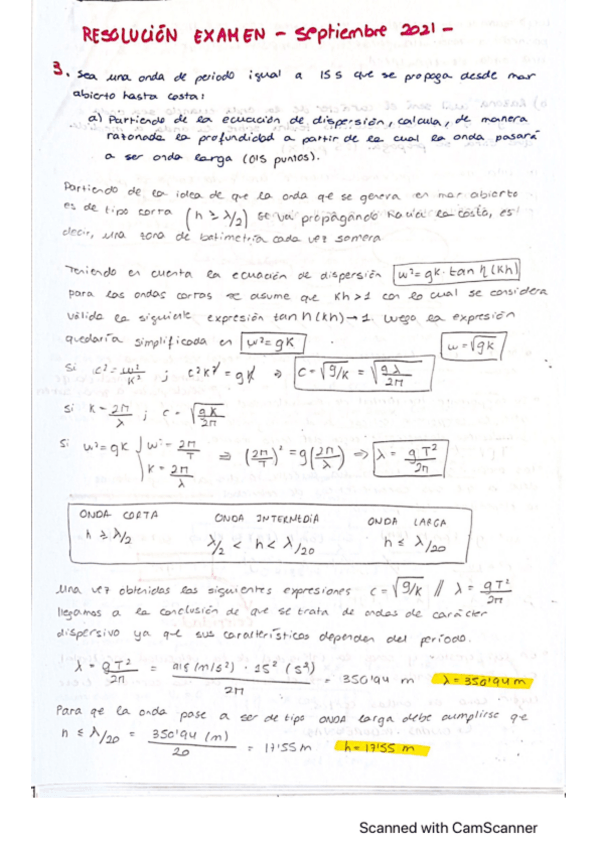 RESOLUCIÓN EXAMEN - Septiembre 2021 -
3. Sea una onda de periodo igual a 15 s que se propaga desde mar
abierto hasta costa:
a) Partiendo de la ecuación de dispersión, calcula, de manera
razonada la profundidad a partir de la cual la onda pasará
a ser onda larga (0'5 puntos).
Partiendo de la idea de que la onda que se genera en mar abierto
es de tipo corta (h ≥ λ/2) se va propagando hacia la costa, es
decir, una zona de batimetría cada vez somera
Teniendo en cuenta la ecuación de dispersión w² = gk·tanh(kh)
para las ondas cortas se asume que kh>1 con lo cual se considera
válida la siguiente expresión tanh(kh)→1 luego la expresión
quedaría simplificada en w²=gk w=√gk
Si c²=w²/k² ; c²k²=gk ⇒ c=√g/k = √gλ/2π
Si k=2π/λ ; c=√gλ/2π
Si w²=gk { w=2π/T k=2π/λ ⇒ (2π/T)²=g(2π/λ) ⇒ λ=gT²/2π
ONDA CORTA ONDA INTERMEDIA ONDA LARGA
h ≥ λ/2 λ/2 < h < λ/20 h ≤ λ/20
Una vez obtenidas las siguientes expresiones c=√g/k // λ=gT²/2π
llegamos a la conclusión de que se trata de ondas de carácter
dispersivo ya que sus características dependen del período.
λ = gT²/2π = 9'8 (m/s²) · 15² (s²)/2π = 350'94 m λ=350'94 m
Para qe la onda pase a ser de tipo onda larga debe cumplirse que
h ≤ λ/20 = 350'94 (m)/20 = 17'55 m h=17'55 m
1
Scanned with CamScanner